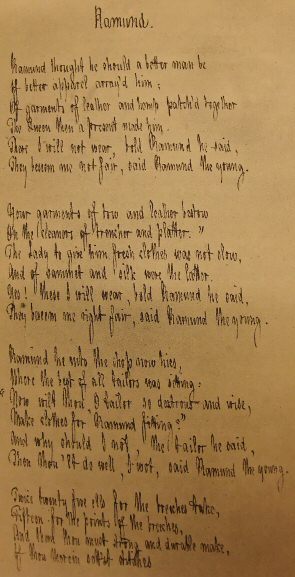 Ramund.
Ramund thought he should a better man be
If better apparel array'd him;
Of garments of leather and hemp patch'd together
The Queen then a present made him.
These I will not wear, bold Ramund he said,
They beseem me not fair, said Ramund the young.
Your garments of tow and leather bestow
On the cleaners of trencher and platter."
The lady to give him fresh clothes was not slow,
And of sammet and silk were the latter.
Yes! these I will wear, bold Ramund he said,
They beseem me right fair, said Ramund the young.
Ramund he unto the shop now hies,
Where the best of all tailors was sitting:
Now wilt thou, O tailor so dextrous and wise,
Make clothes for Ramund fitting?"
And why should I not, the tailor he said,
Then thou'lt do well, I wot, said Ramund the young.
Twice twenty five ells for the breeches take,
Fifteen for the points of the breeches,
And them thou must strong and durable make,
If thou therein settest stitches